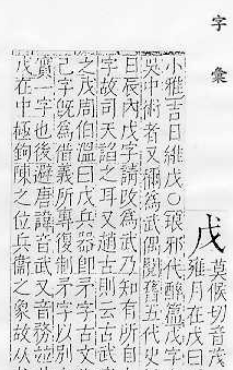 字彙
戊
莫候切音茂
雍月在戊曰
小雅吉日維戊○琅邪代醉篇戊字
吳中術者又稱為武偶閱舊五代史
日辰內戊字請改為武乃知有所自
字故司天諂之耳又趙古則云古武
之戊周伯溫曰戊兵器卽矛字古文
己字旣爲借義所專復制矛字以別
實一字也後避唐諱音武又音務竝
戊在中極鉤陳之位兵衞之象故从